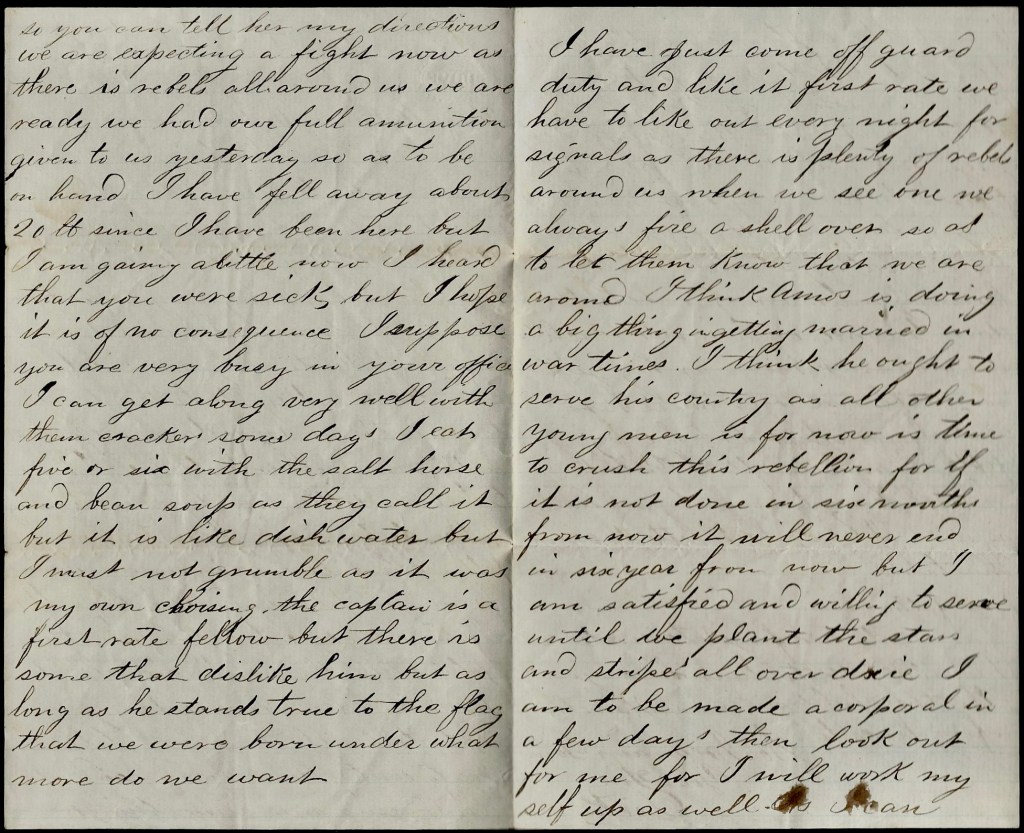 so you can tell her my directions
we are expecting a fight now as
there is rebels all around us we are
ready we had our full amunition
given to us yesterday so as to be
on hand I have fell away about
20 lb since I have been here but
I am gainy alittle now I heard
that you were sick, but I hope
it is of no consequence I suppose
you are very busy in your office
I can get along very well with
them crackers some days I eat
five or six with the salt horse
and bean soup as they call it
but it is like dish water but
I must not grumble as it was
my own choising. the captain is a
first rate fellow but there is
some that dislike him but as
long as he stands true to the flag
that we were born under what
more do we want
I have Just come off guard
duty and like it first rate we
have to like out every night for
signals as there is plenty of rebels
around us when we see one we
always fire a shell over so as
to let them know that we are
around I think Amos is doing
a big thing in getting married in
war times. I think he ought to
serve his country as all other
young men is for now is time
to crush this rebellion for if
it is not done in six months
from now it will never end
in six year from now but I
am satisfied and willing to serve
until we plant the stars
and stripes all over dixie I
am to be made a corporal in
a few days then look out
for me for I will work my
self up as well as I can